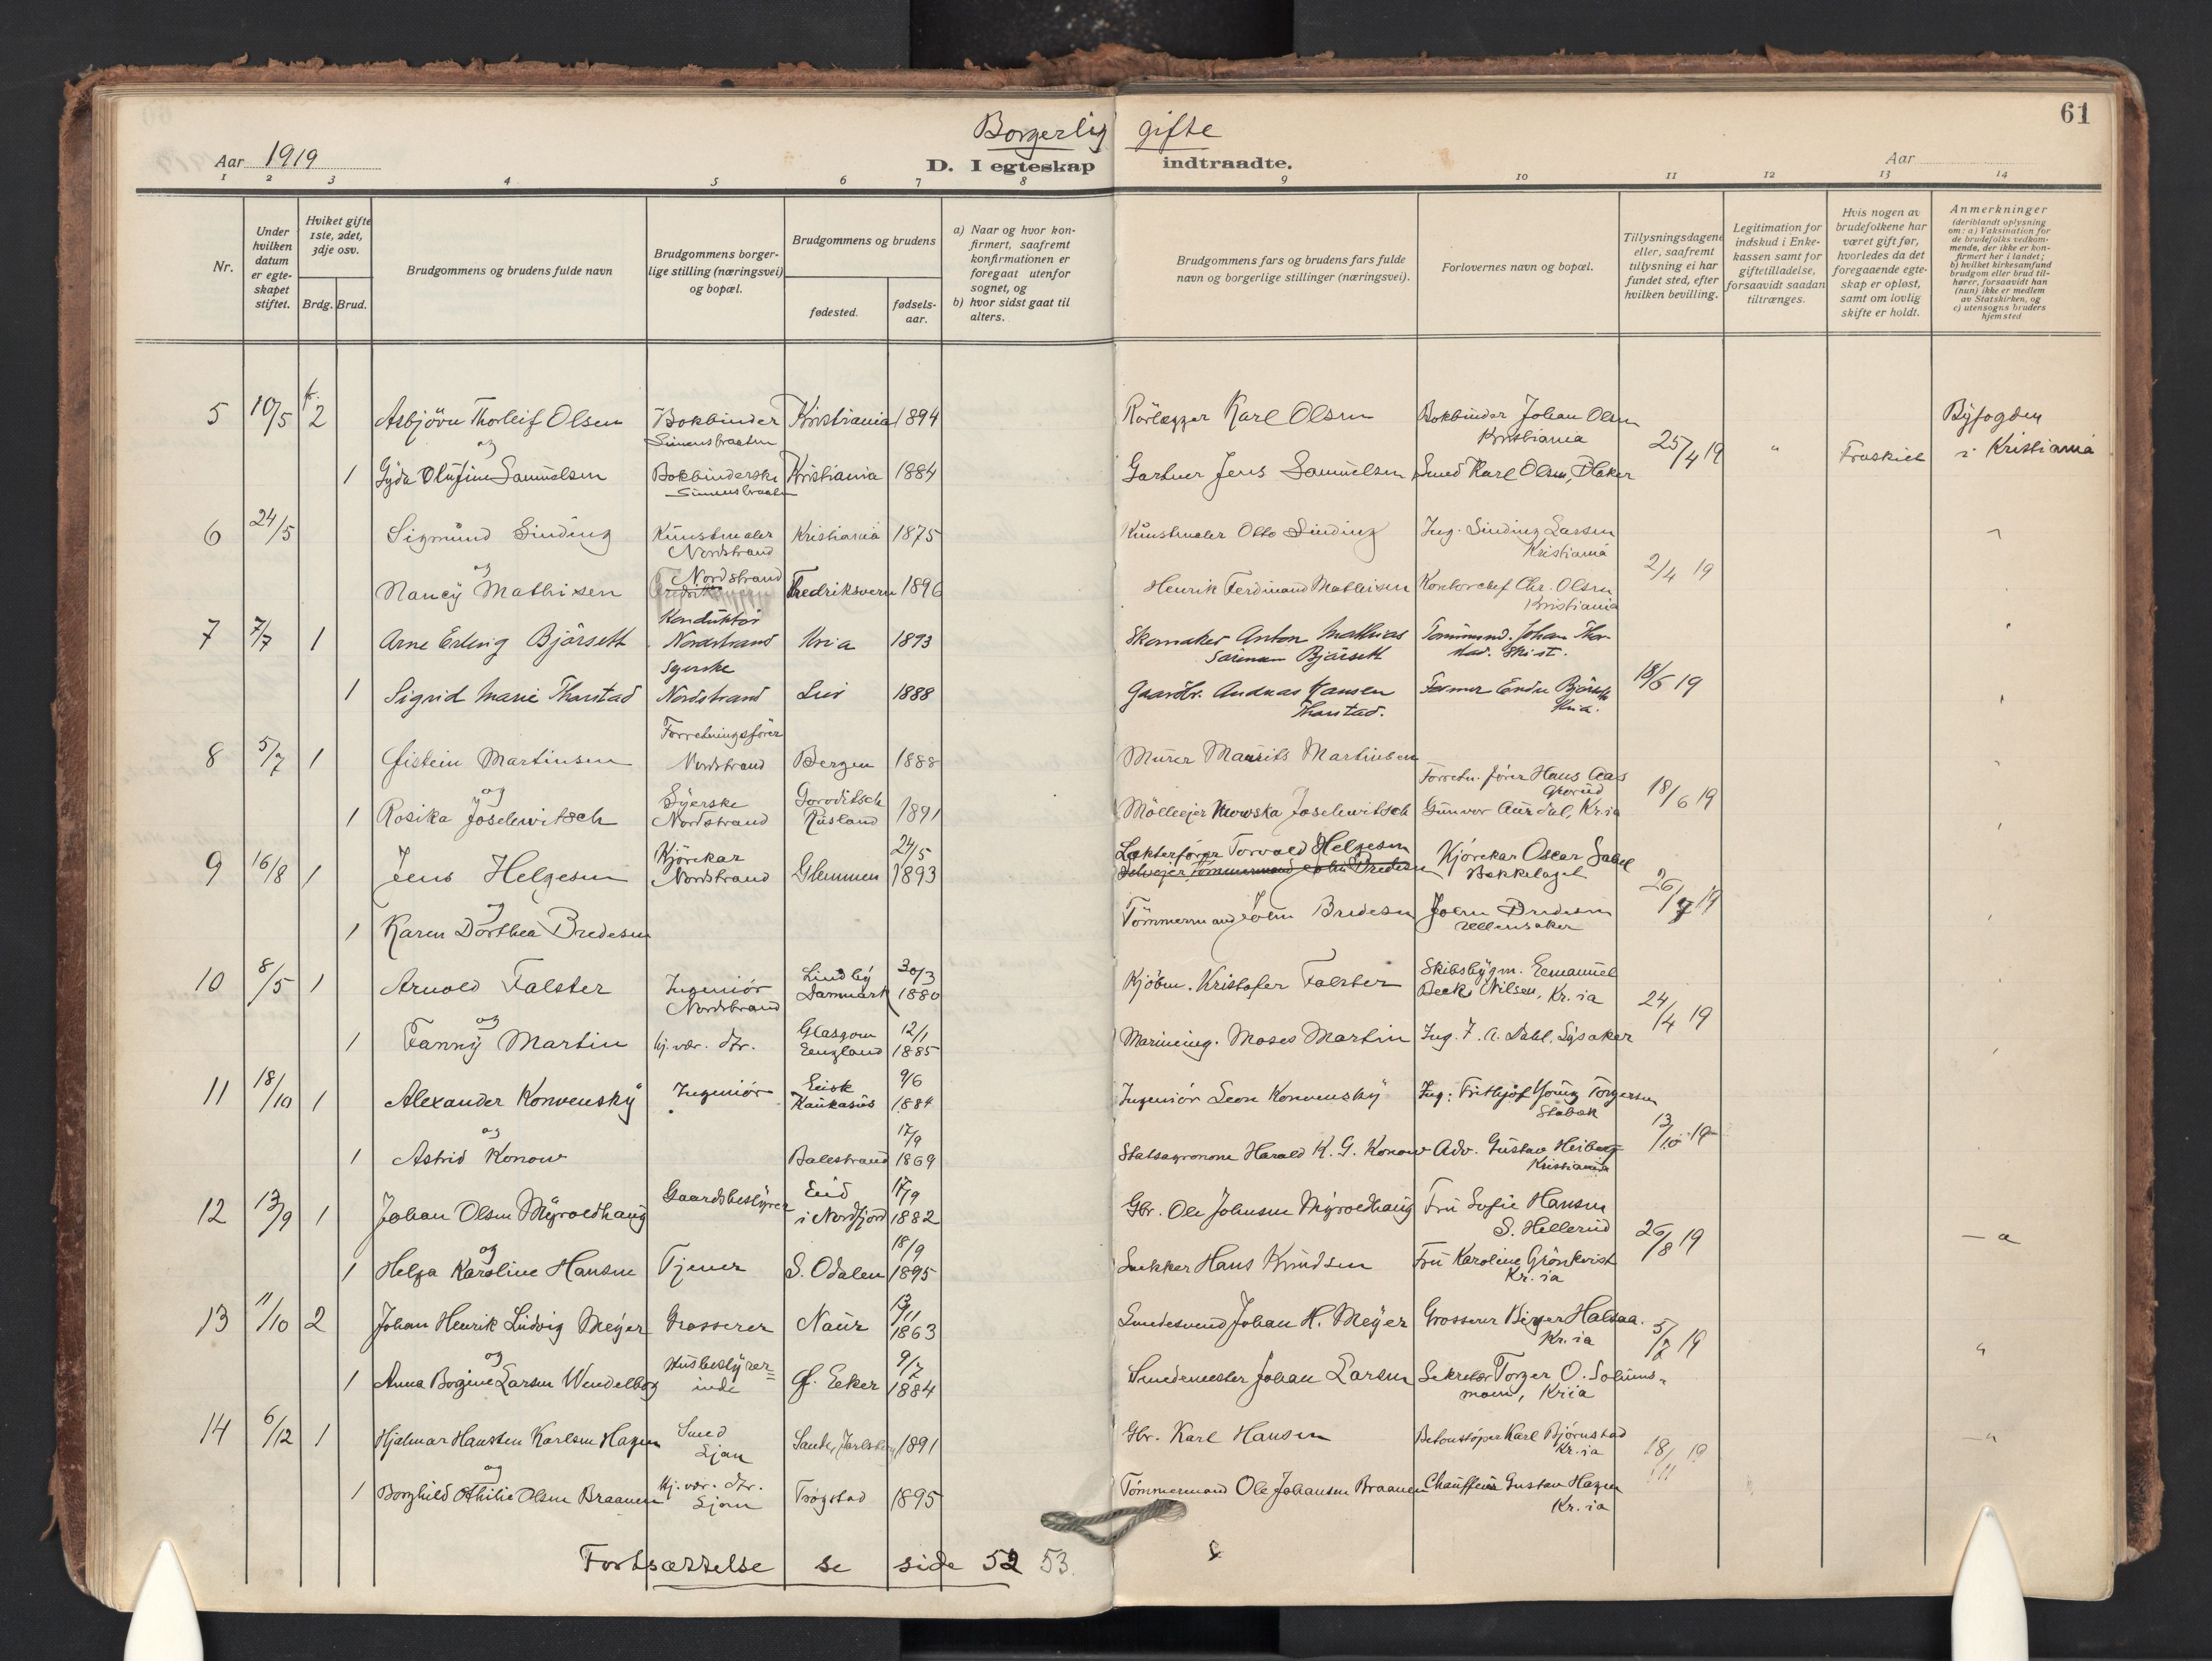 61
Borgerlig gifte
Aar 1919
D. I egteskap indtraadte.
Aar
1 2 3 4 5 6 7 8 9 10 11 12 13 14
Nr.
Under hvilken datum er egteskapet stiftet.
Hviket gifte 1ste, 2det, 3dje osv.
Brdg. Brud.
Brudgommens og brudens fulde navn
Brudgommens borgerlige stilling (næringsvei) og bopæl.
Brudgommens og brudens
fødested.
fødselsaar.
a) Naar og hvor konfirmert, saafremt konfirmationen er foregaat utenfor sognet, og
b) hvor sidst gaat til alters.
Brudgommens fars og brudens fars fulde navn og borgerlige stillinger (næringsvei).
Forlovernes navn og bopæl.
Tillysningsdagene eller, saafremt tillysning ei har fundet sted, efter hvilken bevilling.
Legitimation for indskud i Enkekassen samt for giftetilladelse, forsaavidt saadan tiltrænges.
Hvis nogen av brudefolkene har været gift før, hvorledes da det foregaaende egteskap er opløst, samt om lovlig skifte er holdt.
Anmerkninger
(deriblandt oplysning om: a) Vaksination for de brudefolks vedkommende, der ikke er konfirmert her i landet; b) hvilket kirkesamfund brudgom eller brud tilhører, forsaavidt han (hun) ikke er medlem av Statskirken, og c) utensogns bruders hjemsted
5 10/5 2 Asbjörn Thorleif Olsen Bokbinder Simensbraaten Kristiania 1894 Rörlægger Karl Olsen Bokbinder Johan Olsen Kristiania 25/4 19 " Fraskilt Byfogden i Kristiania
og
1 Gyda Olufine Samuelsen Bokbinderske Simensbraaten Kristiania 1884 Gartner Jens Samuelsen Smed Karl Olsen,
6 24/5 Sigmund Sinding Kunstmaler Nordstrand Kristiania 1875 Kunstmaler Otto Sinding Ing. Sinding Larsen Kristiania 2/4 19
og
Nancy Mathisen Nordstrand Fredriksvern 1896 Henrik Ferdinand Mathisen Kontorchef Chr. Olsen Kristiania
7 7/7 1 Arne Erling Bjørsett Konduktør Nordstrand Kria 1893 Skomaker Anton Mathias Bjørsett Tømmermd. Johan Thorstad. 18/6 19
1 Sigrid Marie Thorstad Syerske Nordstrand 1888 Gaardbr. Andreas Hansen Thorstad. Bjørseth Kria.
8 5/7 1 Øistein Martinsen Forretningsfører Nordstrand Bergen 1888 Murer Maurits Martinsen Forretn.fører Hans Aas Grorud 18/6 19
og
1 Rosika Joselewitsch Syerske Nordstrand Goroditsch Rusland 1891 Mölleejer Mowska Joselewitsch Gunvor Aurdal, Kr.ia
9 16/8 1 Jens Helgesen Kjörekar Nordstrand Glemmen 24/5 1893 Lekterfører Torvald Helgesen Kjörekar Oscar Bekkelaget 26/7 19
og
1 Karen Dorthea Bredesen Tömmermand John Bredesen John Bredesen Ullensaker
10 8/5 1 Arnold Falster Ingeniör Nordstrand Lindby Danmark 30/3 1880 Kjöbm. Kristofer Falster Skibsbygm. Eemanuel Beck Nilsen, Kr.ia 24/4 19
og
1 Fanny Martin hj.vær. dtr. Glasgow Eengland 12/1 1885 Marineing. Moses Martin Ing. F. A. Dahl, Lysaker
11 18/10 1 Alexander Konvensky Ingeniör Eeisk Kaukasus 9/6 1884 Ingeniör Leon Konvensky Ing. Frithjof Young Torgersen Stabæk 13/10 19
og
1 Astrid Konow Balestrand 17/9 1869 Statsagronom Harald K. G. Konow Adv. Gustav Heiberg Kristiania
12 13/9 1 Johan Olsen Myroldhaug Gaardsbestyrer Eid i Nordfjord 17/9 1882 Gbr. Ole Johnsen Myroldhaug Fru Sofie Hansen S. Hellerud 26/8 19
og
1 Helga Karoline Hansen Tjener S. Odalen 18/9 1895 Snekker Hans Knudsen Fru Karoline Grönkvist Kr.ia
13 11/10 2 Johan Henrik Ludvig Meyer Grosserer Naur 13/11 1863 Smedesvend Johan H. Meyer Grosserer Birger Halsaa. Kr.ia 5/7 19
og
1 Anna Borgine Larsen Wendelborg Husbestyrerinde Ø. Eeker 9/7 1884 Smedemester Johan Larsen Sekretær Torger O. Solumsmoen, Kria
14 6/12 1 Hjalmar Hansten Karlsen Hagen Smed Ljan Sande, Jarlsberg 1891 Gbr. Karl Hansen Betonstøper Karl Bjørnstad Kr.ia 18/11 19
og
1 Borghild Othilie Olsen Braanen Hj.vær. dtr. Ljan Trögstad 1895 Tömmermand Ole Johansen Braanen Chauffeur Gustav Hagen Kr.ia
Fortsættelse se side 52 53.